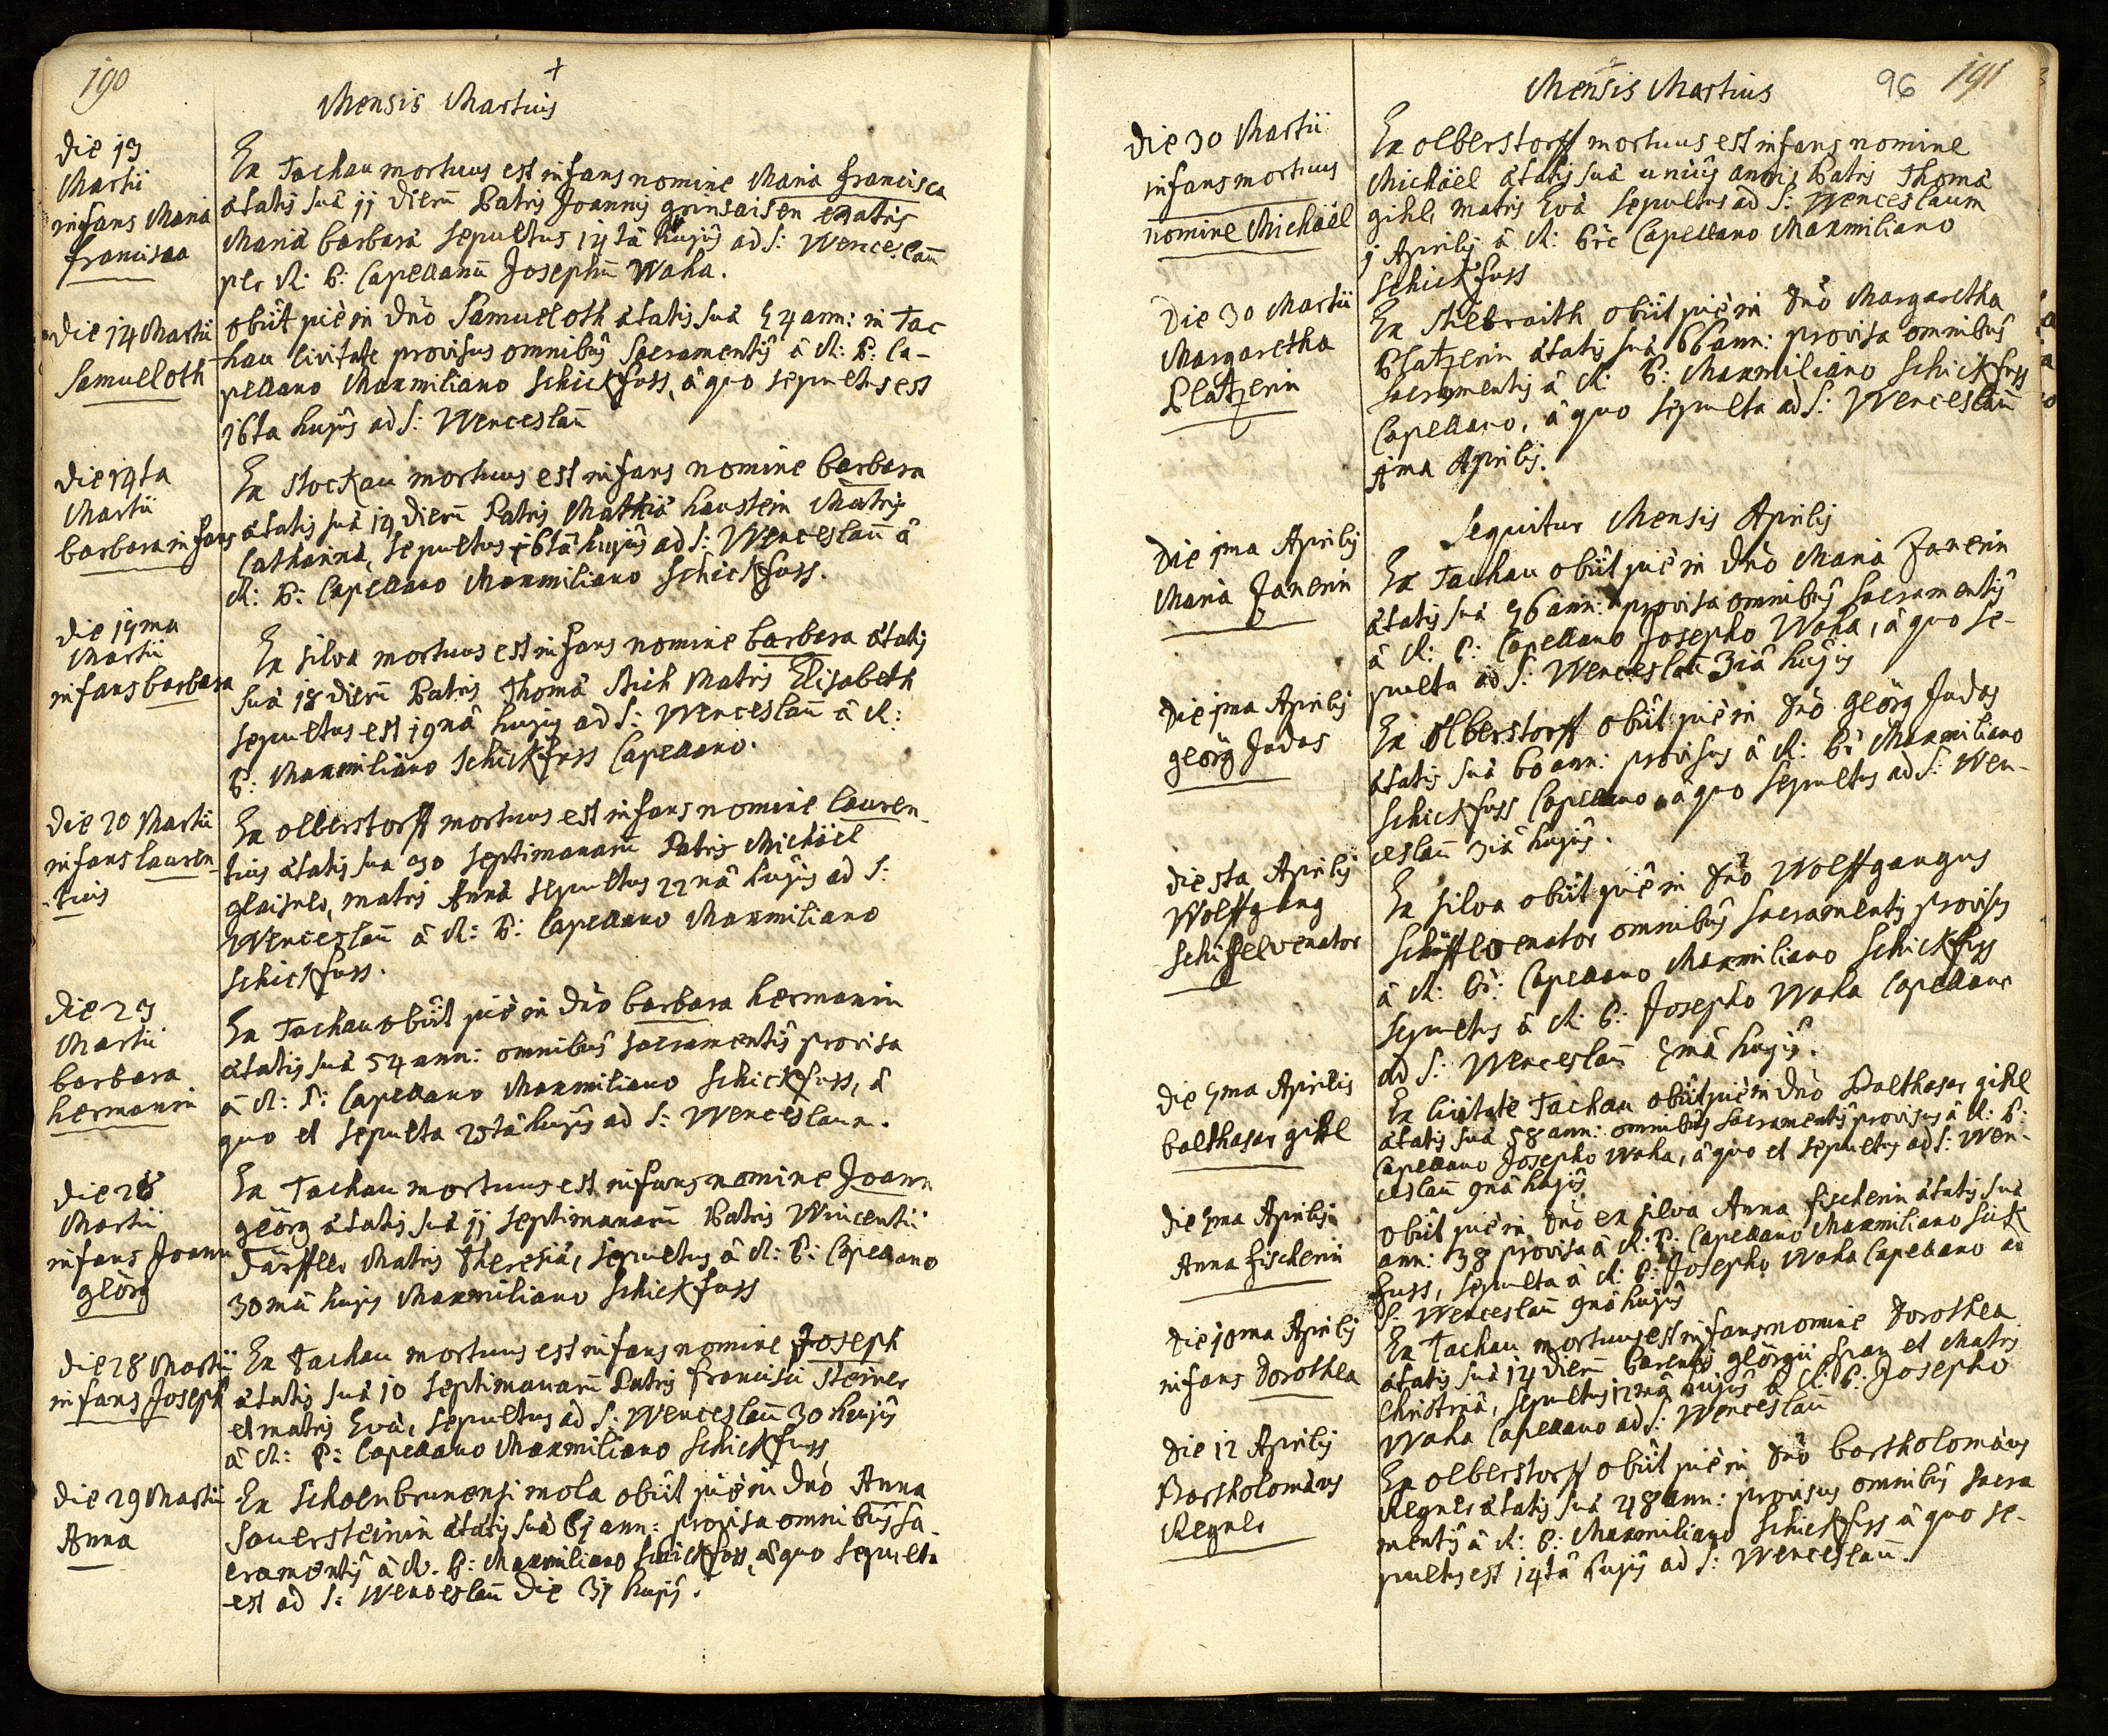 190
+
Mensis Martius
Die 13
Martii
infans Maria
Francisca
Ex Tachau mortuus est infans nomine Maria Francisca
ætatis suæ 11 dierū Patris Joannis Matris
Mariæ Barbaræ sepultus 14tâ hujus ad S: Wenceslaū
per R: P: Capellanū Josephū Waha.
Die 14 Martii
Samuel oth
obiit piè in Dno Samuel oth ætatis suæ 54 ann: in Tac
hau Civitate provisus omnibus Sacramentis â R: P: Ca-
pellano Maxmiliano Schickfuss, â quo sepultus est
16ta hujus ad S: Wenceslaū
Die 14ta
Martii
barbara infans
Ex Stockau mortuus est infans nomine barbara
ætatis suæ 14 dierū Patris Mathiæ haustein Matris
Catharinæ, sepultus 16tâ hujus ad S: Wenceslaū â
R: P: Capellano Maxmiliano Schickfuss.
Die 17ma
Martii
infans barbara
Ex Silva mortuus est infans nomine barbara ætatis
suæ 18 dierū Patris Thomæ Matris Elisabeth
sepultus est 19nâ hujus ad S: Wenceslaū â R:
P: Maxmiliano Schickfuss Capellano.
Die 20 Martii
infans lauren
tius
Ex olberstorff mortuus est infans nomine lauren-
tius ætatis sua 30 septimanarū Patris Michäel
matris Annæ sepultus 22nâ hujus ad S:
Wenceslaū â R: P: Capellano Maxmiliano
Schickfuss.
Die 23
Martii
barbara
hermanin
Ex Tachau obiit piè in Dno barbara hermanin
ætatis suæ 54 ann: omnibus sacramentis provisa
â R: P: Capellano Maxmiliano Schickfuss, â
quo et sepulta 25tâ hujus ad S: Wenceslaum.
Die 28
Martii
infans Joann
geörg
Ex Tachau mortuus est infans nomine Joann
geörg ætatis suæ 11 septimanarū Patris Wincentii
Matris Theresiæ, sepultus â R: P: Capellano
30mâ hujus Maxmiliano Schickfuss
Die 28 Martii
infans Joseph
Ex Tachau mortuus est infans nomine Joseph
ætatis suæ 10 septimanarū Patris Francisci Steiner
et matris Evæ, sepultus ad S: Wenceslaū 30 hujus
â R: P: Capellano Maxmiliano Schickfuss
Die 29 Martii
Anna
Ex Schoenbrunensi mola obiit piè in Dno Anna
Sauersteinin ætatis suæ 61 ann: provisa omnibus Sa-
cramentis â R. P: Maxmiliano Schickfuss, â quo sepulta
est ad S: Wenceslaū Die 31 hujus.
Mensis Martius
96
191
Die 30 Martii
infans mortuus
nomine Michäel
Ex olberstorff mortuus est infans nomine
Michäel ætatis suæ unius anni Patris Thomæ
gihl, matris Evæ sepultus ad S: Wenceslaum
1 Aprilis â R: Capellano Maxmiliano
Schickfuss
Die 30 Martii
Margaretha
Platzerin
Ex obiit piè in Dno Margaretha
Platzerin ætatis suæ 66 ann: provisa omnibus
sacramentis â R: P: Maxmiliano Schickfuss
Capellano, â quo sepulta ad S: Wenceslaū
1ma Aprilis.
Sequitur Mensis Aprilis
Die 1ma Aprilis
Maria Janerin
Ex Tachau obiit piè in Dno Maria Janerin
ætatis suæ 56 ann: provisa omnibus sacramentis
â R: P: Capellano Josepho Waha, â quo se-
pulta ad S: Wenceslaū 3iâ hujus
Die 1ma Aprilis
geörg Judas
Ex olberstorff obiit piè in Dno geörg Judas
ætatis suæ 60 ann: provisus â R: P: Maxmiliano
Schickfuss Capellano, â quo sepultus ad S: Wen-
ceslaū 3iâ hujus.
Die 5ta Aprilis
Wolffgang
Schiffel venator
Ex Silva obiit piè in Dno Wolffgangus
Schiffel venator omnibus sacramentis provisus
â R: P: Capellano Maxmiliano Schickfuss
sepultus â R: P: Josepho Waha Capellano
ad S: Wenceslaū 7mâ hujus.
Die 7ma Aprilis
balthasar gihl
Ex Civitate Tachau obiit piè in Dno Balthasar gihl
ætatis suæ 58 ann: omnibus Sacramentis provisus â R: P:
Capellano Josepho Waha, â quo et sepultus ad S: Wen-
ceslaū 9nâ hujus
Die 7ma Aprilis
Anna fischerin
obiit piè in Dno ex silva Anna fischerin ætatis suæ
ann: 38 provisa â R: P: Capellano Maxmiliano Sick
fuss, sepulta â R: P: Josepho Waha Capellano ad
S: Wenceslaū 9nâ hujus
Die 10ma Aprilis
infans Dorothea
Ex Tachau mortuus est infans nomine Dorothea
ætatis suæ 14 dierū Parentis geörgii et Matris
Christinæ, sepultus 12mâ hujus â R: P: Josepho
Waha Capellano ad S: Wenceslaū
Die 12 Aprilis
Bartholomæus
Regner
Ex olberstorff obiit piè in Dno bartholomæus
Regner ætatis suæ 48 ann: provisus omnibus sacra
mentis â R: P: Maxmiliano Schickfuss â quo se-
pultus est 14tâ hujus ad S: Wenceslaū.